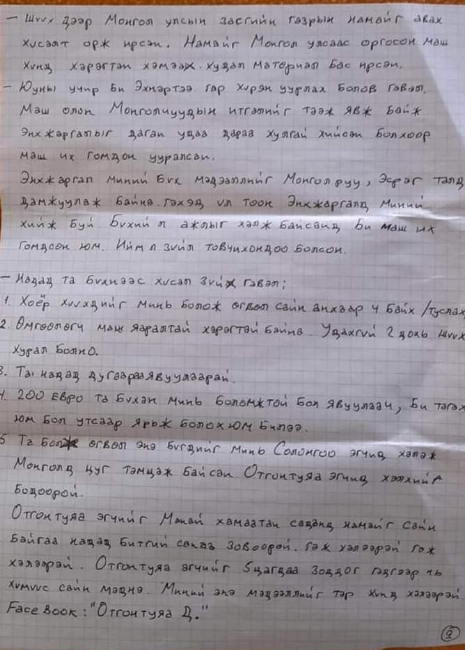 - Шүүх дээр Монгол улсын засгийн газрын намайг авах
хүсэлт орж ирсэн. Намайг Монгол улсаас оргосон маш
хүнд хэрэгтэн хэмээх худал материал бас ирсэн.
- Юуны учир Би Эхнэртээ гар хүрэн уурлах болов гэвэл.
Маш олон Монголчуудын итгэлийг тээж явж байж
Энхжаргалыг даган удаа дараа хулгай хийсэн болхоор
маш их гомдон уурласан.
Энхжаргал миний Бүх мэдээллийг Монгол руу, Эсрэг талд
дамжуулаж байна. гэхэд үл тоон Энхжаргалд миний
хийж буй Бүхий л ажлыг хэлж байсанд Би маш их
гомдсон юм. Ийм л зүйл товчихондоо болсон.
- Надад та бүхнээс хүсэх зүйл гэвэл:
1. Хоёр хүүхдийг минь болож өгвөл сайн анхаарч байх /туслах
2. Өмгөөлөгч маш яаралтай хэрэгтэй байна. Удахгүй 2 дохь шүүх
хурал болно.
3. Та надад дугаараа явуулаарай.
4. 200 евро та бүхэн минь боломжтой бол явуулаач, Би тэгэх
юм бол утсаар ярьж болох юм билээ.
5 Та Болж өгвөл энэ бүгдийг минь Солонгоо эгчид хэлэж
Монголд цуг тэмцэж байсан Отгонтуяа эгчид хэлхийг
бодоорой.
Отгонтуяа эгчийг Манай хамаатан саданд намайг сайн
байгаа надад битгий санаа зовоорой. гэж хэлээрэй гэж
хэлээрэй. Отгонтуяа эгчийг 5цагдаа зоддог гэдгээр нь
хүмүүс сайн мэднэ. Миний энэ мэдээллийг тэр хүнд хэлээрэй
FaceBook: "Отгонтуяа Д."
②